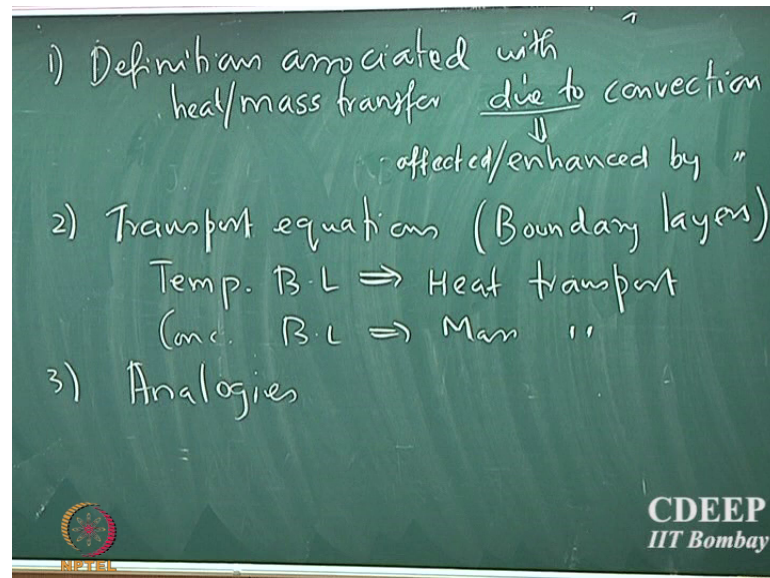 1) Definitions associated with
heat/mass transfer due to convection
⇓
affected/enhanced by "
2) Transport equations (Boundary layers)
Temp. B.L ⇒ Heat transport
Conc. B.L ⇒ Mass "
3) Analogies
CDEEP
IIT Bombay
NPTEL